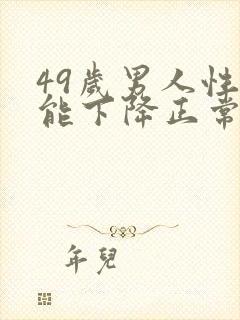 49歲男人性
能下降正常
年兒